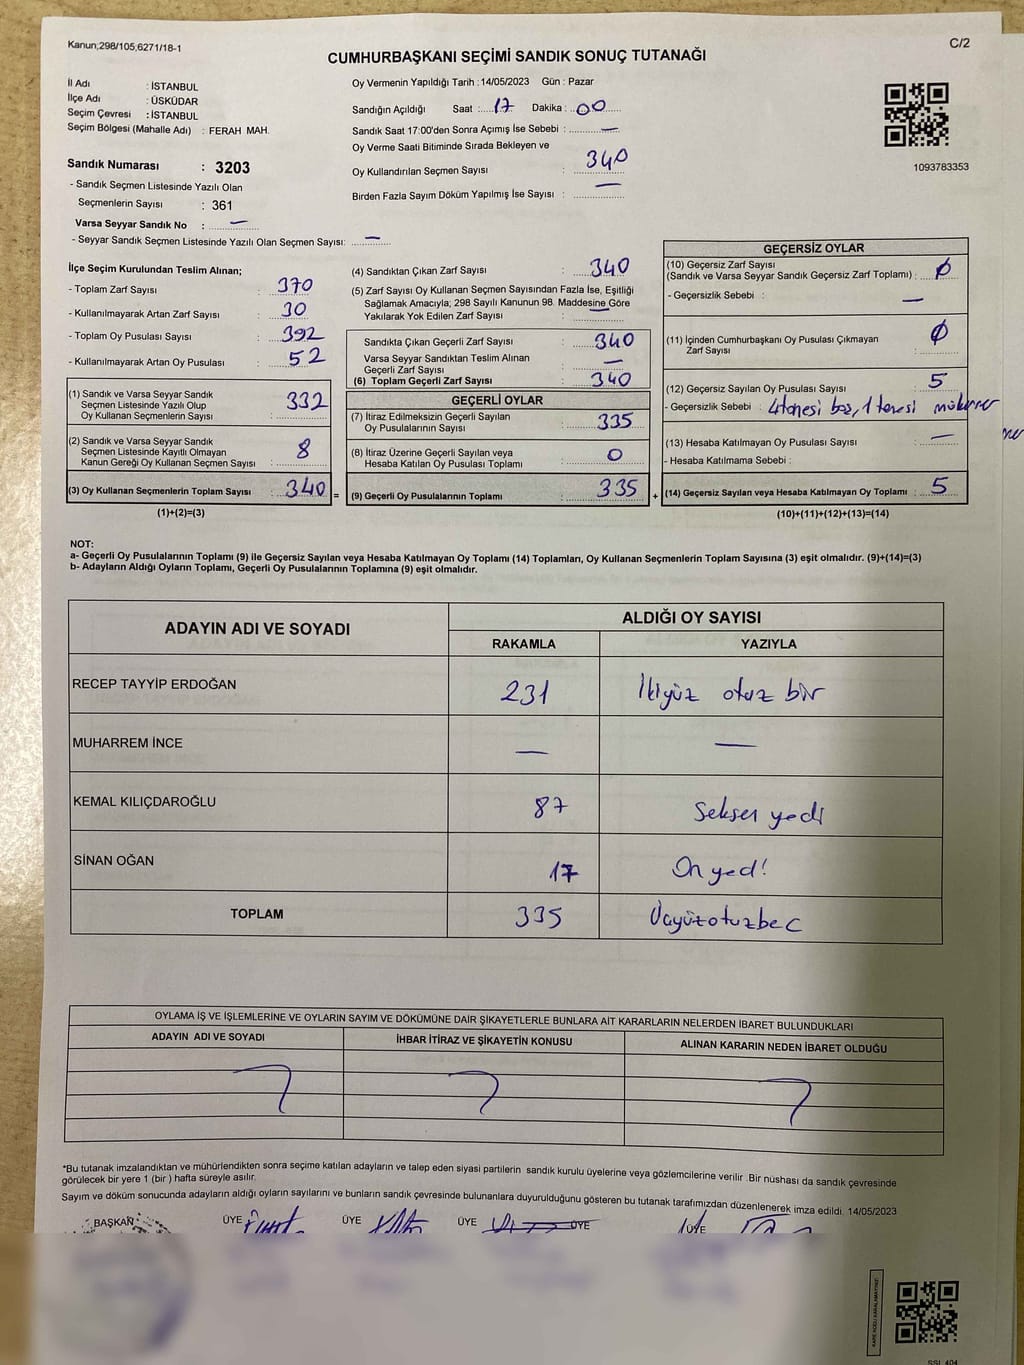 Kanun;298/105;6271/18-1
C/2
CUMHURBAŞKANI SEÇİMİ SANDIK SONUÇ TUTANAĞI
İl Adı : İSTANBUL
İlçe Adı : ÜSKÜDAR
Seçim Çevresi : İSTANBUL
Seçim Bölgesi (Mahalle Adı) : FERAH MAH.
Sandık Numarası : 3203
- Sandık Seçmen Listesinde Yazılı Olan
Seçmenlerin Sayısı : 361
Varsa Seyyar Sandık No : —
- Seyyar Sandık Seçmen Listesinde Yazılı Olan Seçmen Sayısı: —
Oy Vermenin Yapıldığı Tarih : 14/05/2023 Gün : Pazar
Sandığın Açıldığı Saat : 17 Dakika : 00
Sandık Saat 17:00'den Sonra Açımış İse Sebebi : —
Oy Verme Saati Bitiminde Sırada Bekleyen ve
Oy Kullandırılan Seçmen Sayısı : 340
Birden Fazla Sayım Döküm Yapılmış İse Sayısı : —
1093783353
İlçe Seçim Kurulundan Teslim Alınan;
- Toplam Zarf Sayısı : 370
- Kullanılmayarak Artan Zarf Sayısı : 30
- Toplam Oy Pusulası Sayısı : 392
- Kullanılmayarak Artan Oy Pusulası : 52
(1) Sandık ve Varsa Seyyar Sandık
Seçmen Listesinde Yazılı Olup
Oy Kullanan Seçmenlerin Sayısı : 332
(2) Sandık ve Varsa Seyyar Sandık
Seçmen Listesinde Kayıtlı Olmayan
Kanun Gereği Oy Kullanan Seçmen Sayısı : 8
(3) Oy Kullanan Seçmenlerin Toplam Sayısı : 340 =
(1)+(2)=(3)
(4) Sandıktan Çıkan Zarf Sayısı : 340
(5) Zarf Sayısı Oy Kullanan Seçmen Sayısından Fazla İse, Eşitliği
Sağlamak Amacıyla; 298 Sayılı Kanunun 98. Maddesine Göre
Yakılarak Yok Edilen Zarf Sayısı : —
Sandıkta Çıkan Geçerli Zarf Sayısı : 340
Varsa Seyyar Sandıktan Teslim Alınan
Geçerli Zarf Sayısı : —
(6) Toplam Geçerli Zarf Sayısı : 340
GEÇERLİ OYLAR
(7) İtiraz Edilmeksizin Geçerli Sayılan
Oy Pusulalarının Sayısı : 335
(8) İtiraz Üzerine Geçerli Sayılan veya
Hesaba Katılan Oy Pusulası Toplamı : 0
(9) Geçerli Oy Pusulalarının Toplamı : 335 +
GEÇERSİZ OYLAR
(10) Geçersiz Zarf Sayısı
(Sandık ve Varsa Seyyar Sandık Geçersiz Zarf Toplamı) : 0
- Geçersizlik Sebebi : —
(11) İçinden Cumhurbaşkanı Oy Pusulası Çıkmayan
Zarf Sayısı : 0
(12) Geçersiz Sayılan Oy Pusulası Sayısı : 5
- Geçersizlik Sebebi : 4 tanesi boş, 1 tanesi mükerrer
(13) Hesaba Katılmayan Oy Pusulası Sayısı : —
- Hesaba Katılmama Sebebi :
(14) Geçersiz Sayılan veya Hesaba Katılmayan Oy Toplamı : 5
(10)+(11)+(12)+(13)=(14)
NOT:
a- Geçerli Oy Pusulalarının Toplamı (9) ile Geçersiz Sayılan veya Hesaba Katılmayan Oy Toplamı (14) Toplamları, Oy Kullanan Seçmenlerin Toplam Sayısına (3) eşit olmalıdır. (9)+(14)=(3)
b- Adayların Aldığı Oyların Toplamı, Geçerli Oy Pusulalarının Toplamına (9) eşit olmalıdır.
ADAYIN ADI VE SOYADI
ALDIĞI OY SAYISI
RAKAMLA YAZIYLA
RECEP TAYYİP ERDOĞAN 231 İkiyüz otuz bir
MUHARREM İNCE — —
KEMAL KILIÇDAROĞLU 87 Seksen yedi
SİNAN OĞAN 17 On yedi
TOPLAM 335 Üçyüzotuzbeş
OYLAMA İŞ VE İŞLEMLERİNE VE OYLARIN SAYIM VE DÖKÜMÜNE DAİR ŞİKAYETLERLE BUNLARA AİT KARARLARIN NELERDEN İBARET BULUNDUKLARI
ADAYIN ADI VE SOYADI İHBAR İTİRAZ VE ŞİKAYETİN KONUSU ALINAN KARARIN NEDEN İBARET OLDUĞU
*Bu tutanak imzalandıktan ve mühürlendikten sonra seçime katılan adayların ve talep eden siyasi partilerin sandık kurulu üyelerine veya gözlemcilerine verilir .Bir nüshası da sandık çevresinde
görülecek bir yere 1 (bir ) hafta süreyle asılır.
Sayım ve döküm sonucunda adayların aldığı oyların sayılarını ve bunların sandık çevresinde bulunanlara duyurulduğunu gösteren bu tutanak tarafımızdan düzenlenerek imza edildi. 14/05/2023
BAŞKAN ÜYE ÜYE ÜYE ÜYE ÜYE